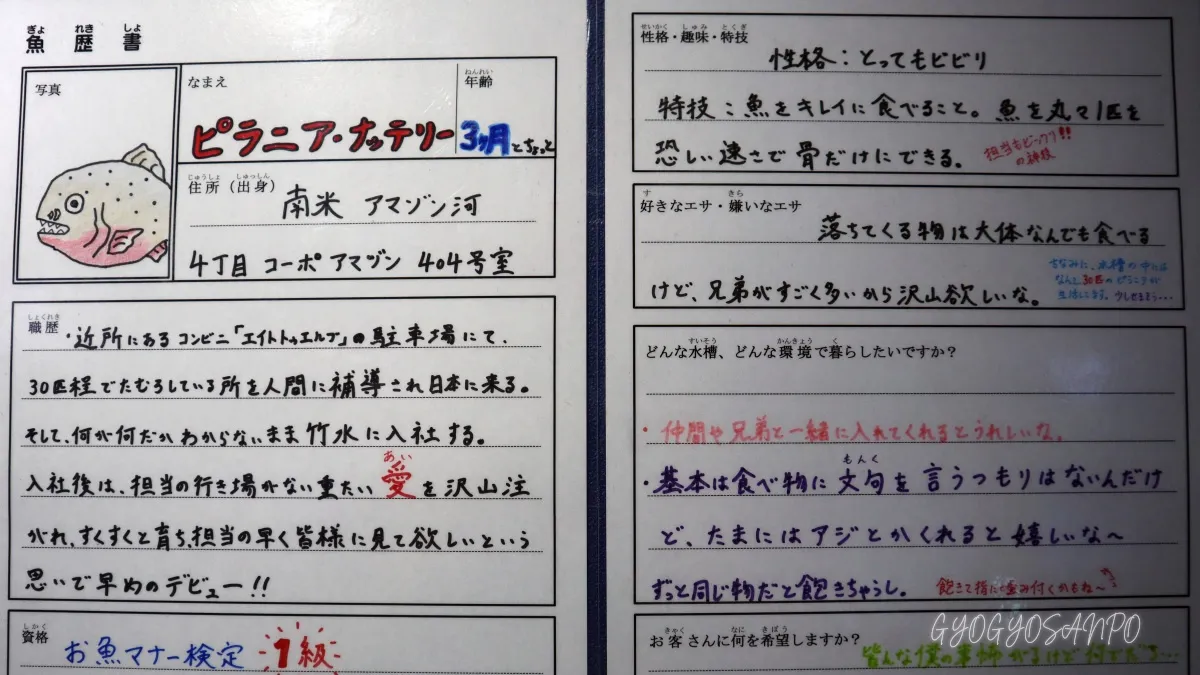 魚歴書
ぎょ れき しょ
写真
なまえ
ピラニア・ナッテリー
年齢
ねんれい
3ヶ月とちょっと
じゅうしょ しゅっしん
住所（出身）
南米 アマゾン河
4丁目 コーポ アマゾン 404号室
しょくれき
職歴
・近所にあるコンビニ「エイトトゥエルブ」の駐車場にて、
30匹程でたむろしている所を人間に補導され日本に来る。
そして、何が何だかわからないまま竹水に入社する。
あい
入社後は、担当の行き場がない重たい愛を沢山注
がれ、すくすくと育ち、担当の早く皆様に見て欲しいという
思いで早めのデビュー!!
しかく
資格
お魚マナー検定 1級
せいかく しゅみ とくぎ
性格・趣味・特技
性格：とってもビビリ
特技：魚をキレイに食べること。魚を丸々1匹を
恐しい速さで骨だけにできる。
担当もビックリ!!
の神技
す きら
好きなエサ・嫌いなエサ
落ちてくる物は大体なんでも食べる
けど、兄弟がすごく多いから沢山欲しいな。
ちなみに、水槽の中には
なんと30匹のピラニアが
生活してます。
すいそう かんきょう く
どんな水槽、どんな環境で暮らしたいですか？
・仲間や兄弟と一緒に入れてくれるとうれしいな。
もんく
・基本は食べ物に文句を言うつもりはないんだけ
ど、たまにはアジとかくれると嬉しいな〜
ずっと同じ物だと飽きちゃうし。
飽きて指に噛み付くかもね〜
きゃく なに きぼう
お客さんに何を希望しますか？
GYOGYOSANPO